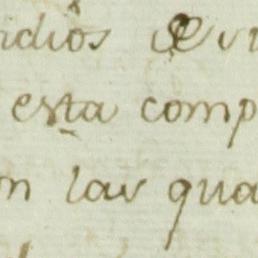 ndiôs Se vi
esta comp
on las qua